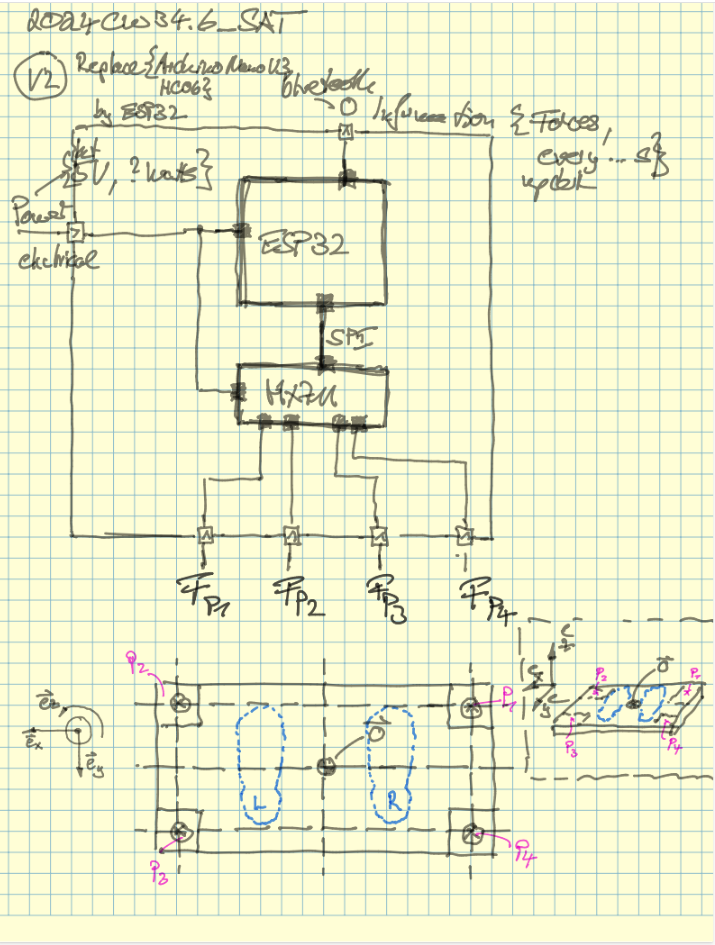 2024CW34.6_SAT
V2 Replace {Arduino Nano V3
HC06}
by ESP32
bluetooth
Information {Forces,
every ... s}
update
5V, ? watts}
Power
electrical
ESP32
SPI
HX711
F_P1 F_P2 F_P3 F_P4
P2
P1
L
R
O
P3
P4
e_z
e_x
e_y
e_z
e_x
e_y
P2
O
P1
P3
P4